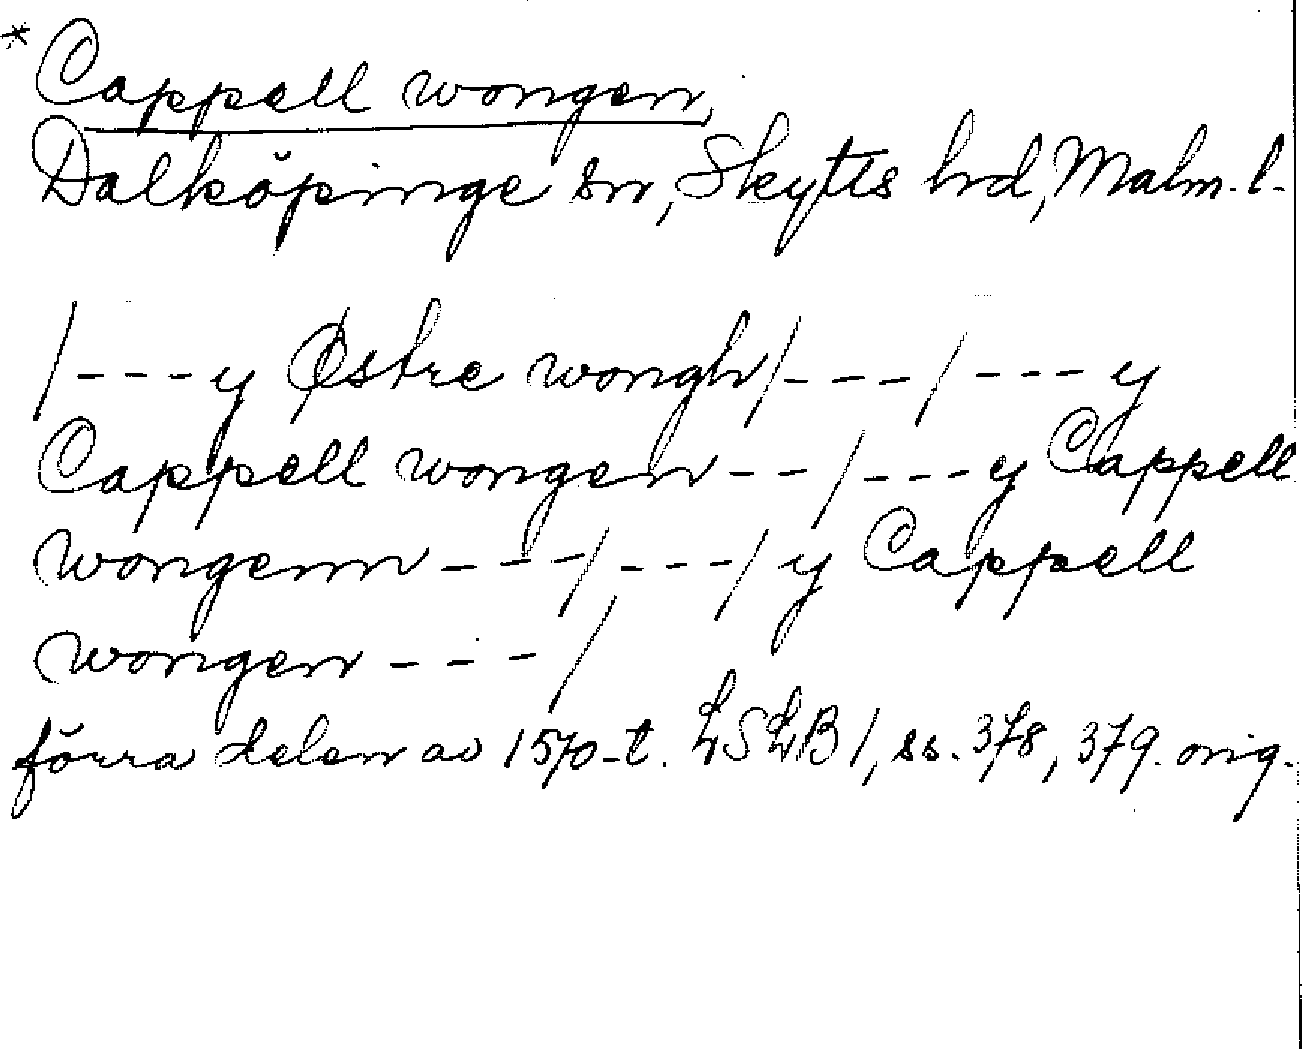 * Cappell wongen,
Dalköpinge sn, Skytts hrd, Malm. l.
/---y Østre wongh/---/---y
Cappell wongen--/---y Cappell
wongenn---/---/y Cappell
wongen---/
förra delen av 1570-t. LSLB 1, ss. 378, 379. orig.